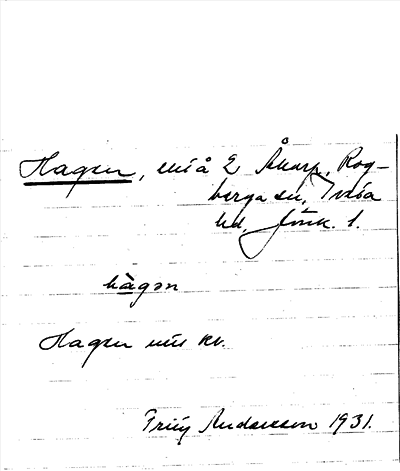 Hagen, enst å E Åkarp, Rog-
berga sn, Tveta
hd, Jönk. l.
hàgən
Hagen enst kv.
Friey Andersson 1931.